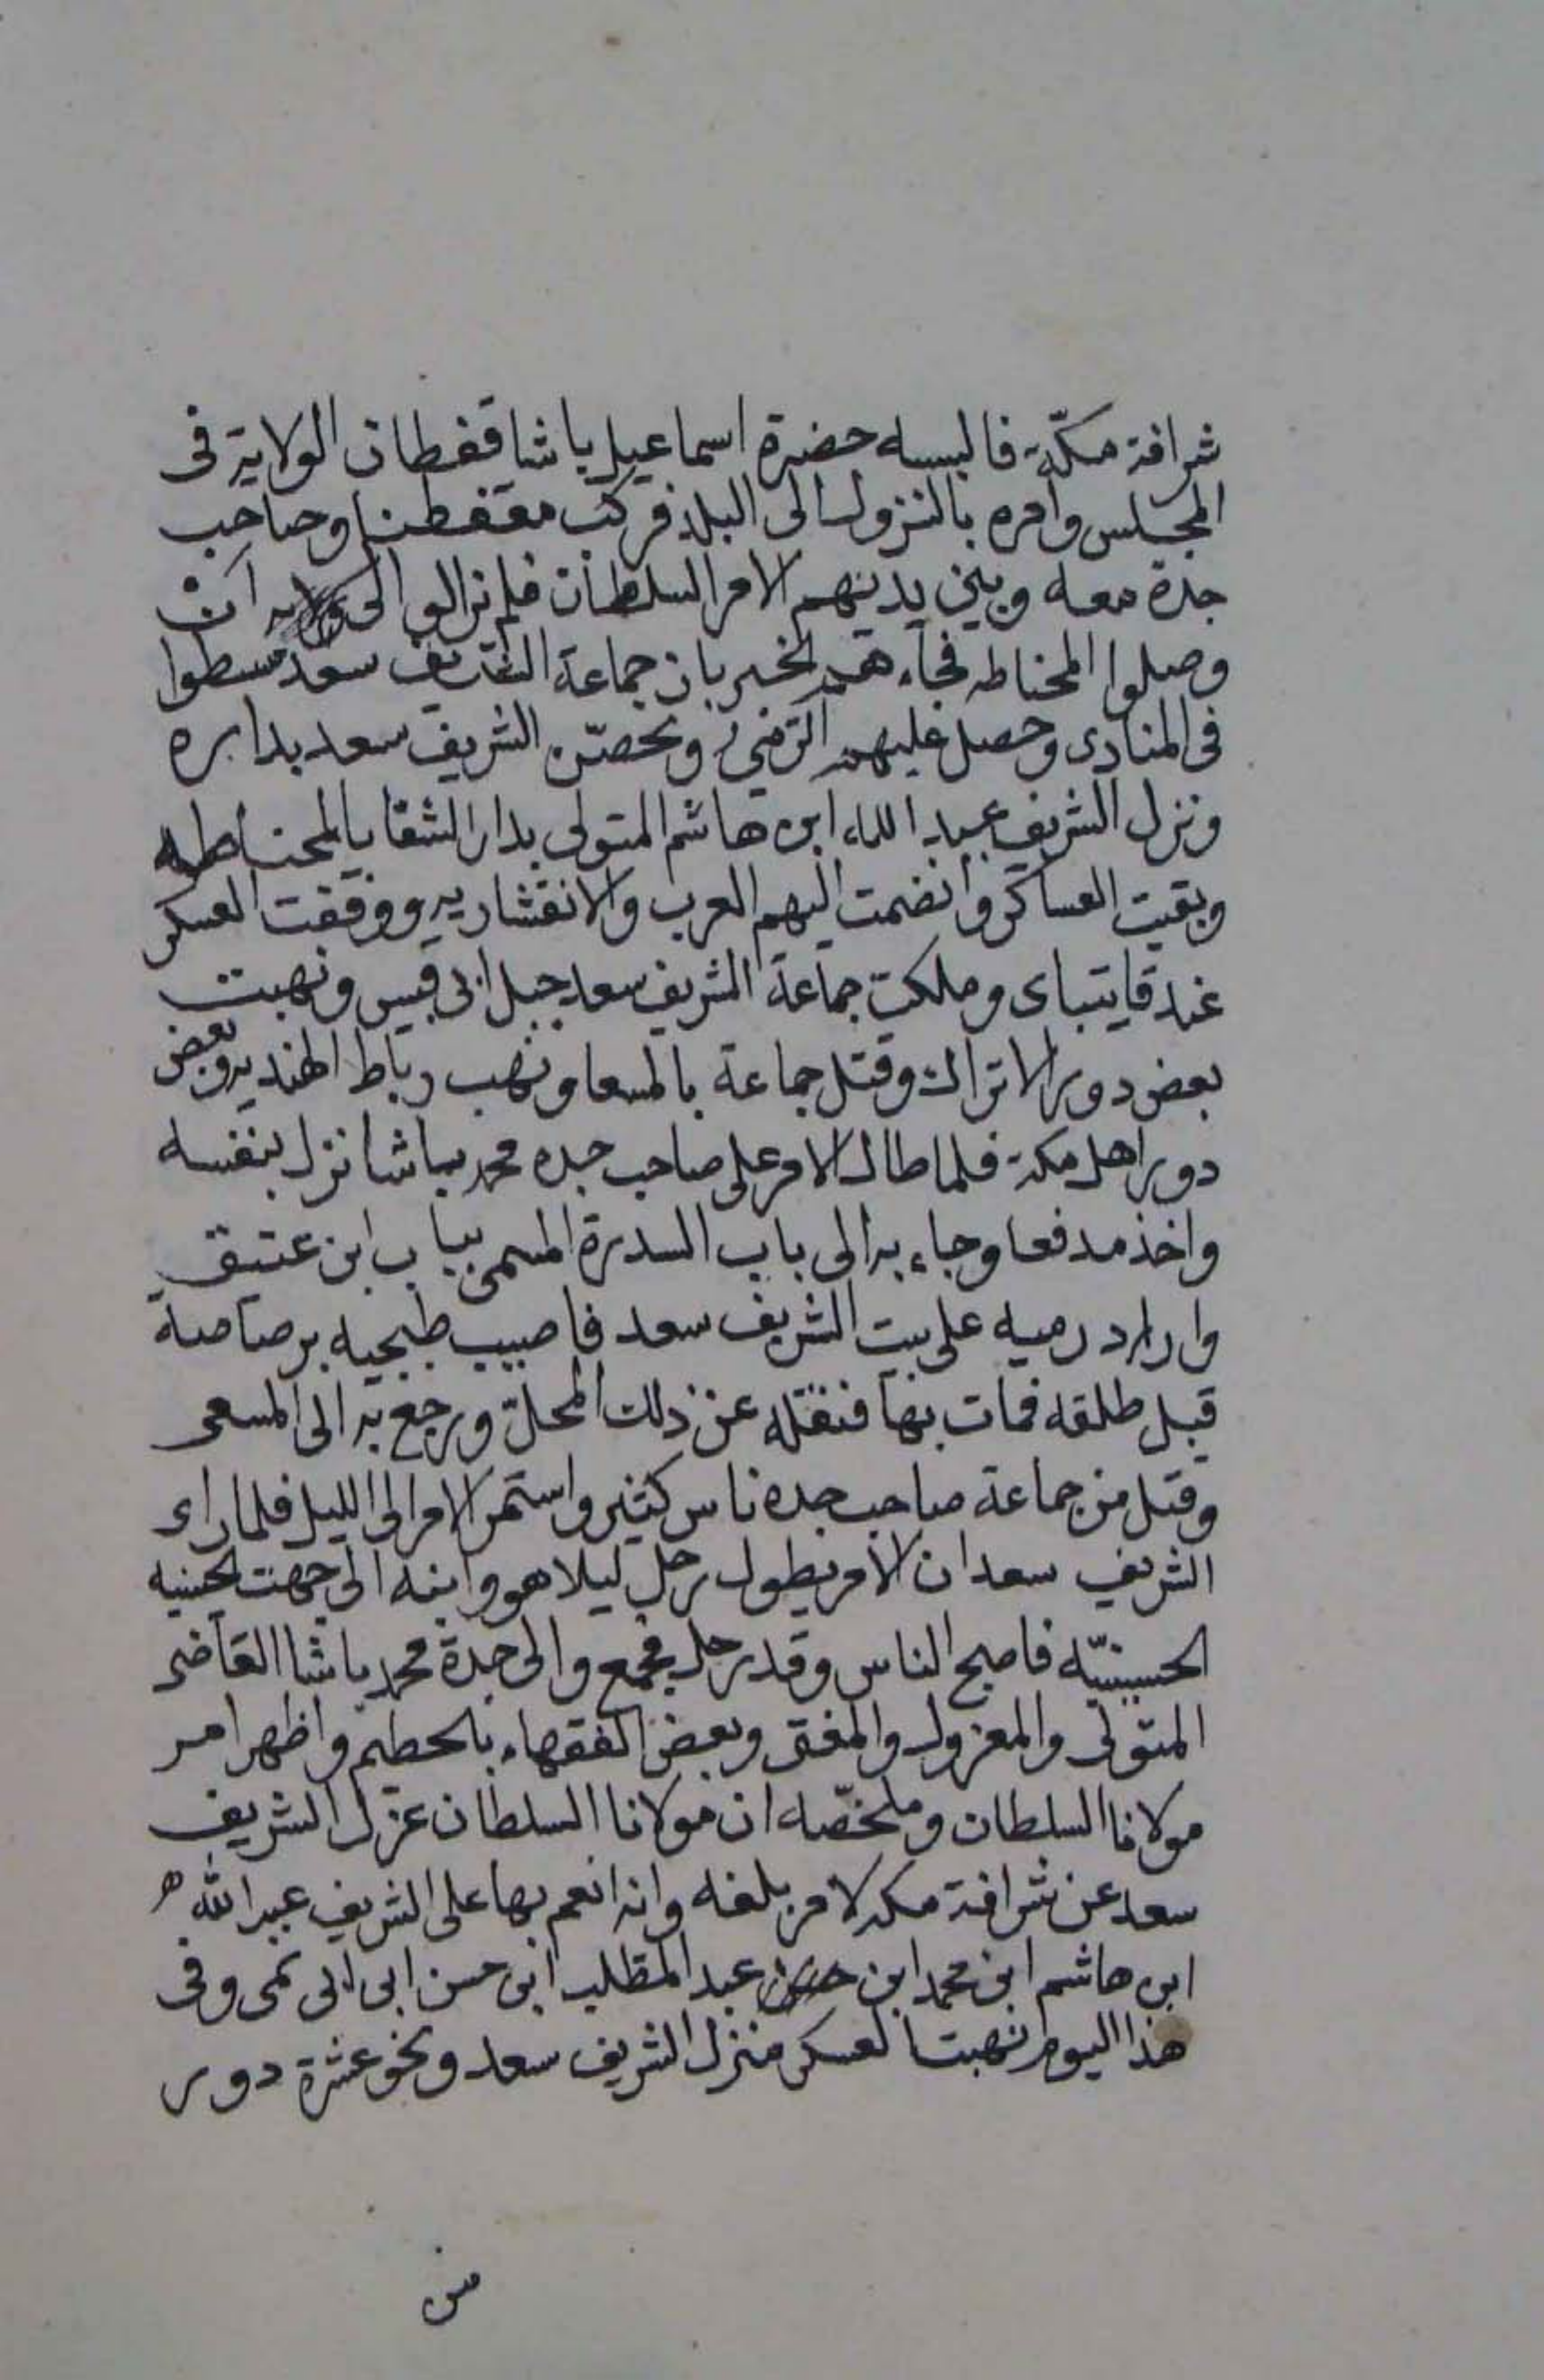 شرافة مكّة فالبسه حضرة اسماعيل باشا قفطان الولاية فى
المجلس وامره بالنزول الى البلد فركب مقفطنا وصاحب
جدة معه وبين يديهم الامر السلطان فلم نزالوا الى ان
وصلوا المحناطه فجاءهم الخبر بان جماعة الشريف سعد سطوا
فى المنادى وحصل عليهم الرمى وتحصّن الشريف سعد بداره
ونزل الشريف عبد الله ابن هاشم المتولى بدار الشقايا بالمحناطه
وبقيت العساكر وانضمت اليهم العرب والانقشاريه ووقفت العسكر
عند قايتباى وملكت جماعة الشريف سعد جبل ابى قبيس ونهبت
بعض دور الاتراك وقتل جماعة بالمسعا ونهب رباط الهنديه وبعض
دور اهل مكة فلما طال الامر على صاحب جده محمد باشا نزل بنفسه
واخذ مدفعا وجاء به الى باب السدرة المسمى بباب ابن عتيق
واراد رميه على بيت الشريف سعد فاصيب طبجيه برصاصة
قبل طلقه فمات بها فنقله عن ذلك المحلّ ورجع به الى المسعى
وقتل من جماعة صاحب جده ناس كثير واستمر الامر الى الليل فلما راى
الشريف سعد ان الامر يطول رحل ليلا هو وابنه الى جهت الحينيه
الحسينيّه فاصبح الناس وقد رحل فجمع والى جدة محمد باشا القاضى
المتولى والمعزول والمفتى وبعض الفقهاء بالحطيم واظهر امر
مولانا السلطان وملخصّه ان مولانا السلطان عزل الشريف
سعد عن شرافة مكه لامر بلغه وانه انعم بها على الشريف عبد الله
ابن هاشم ابن محمد ابن عبد المطلب ابن حسن ابى ابى نمى وفى
هذا اليوم نهبت العسكر منزل الشريف سعد ونحو عشرة دور
من